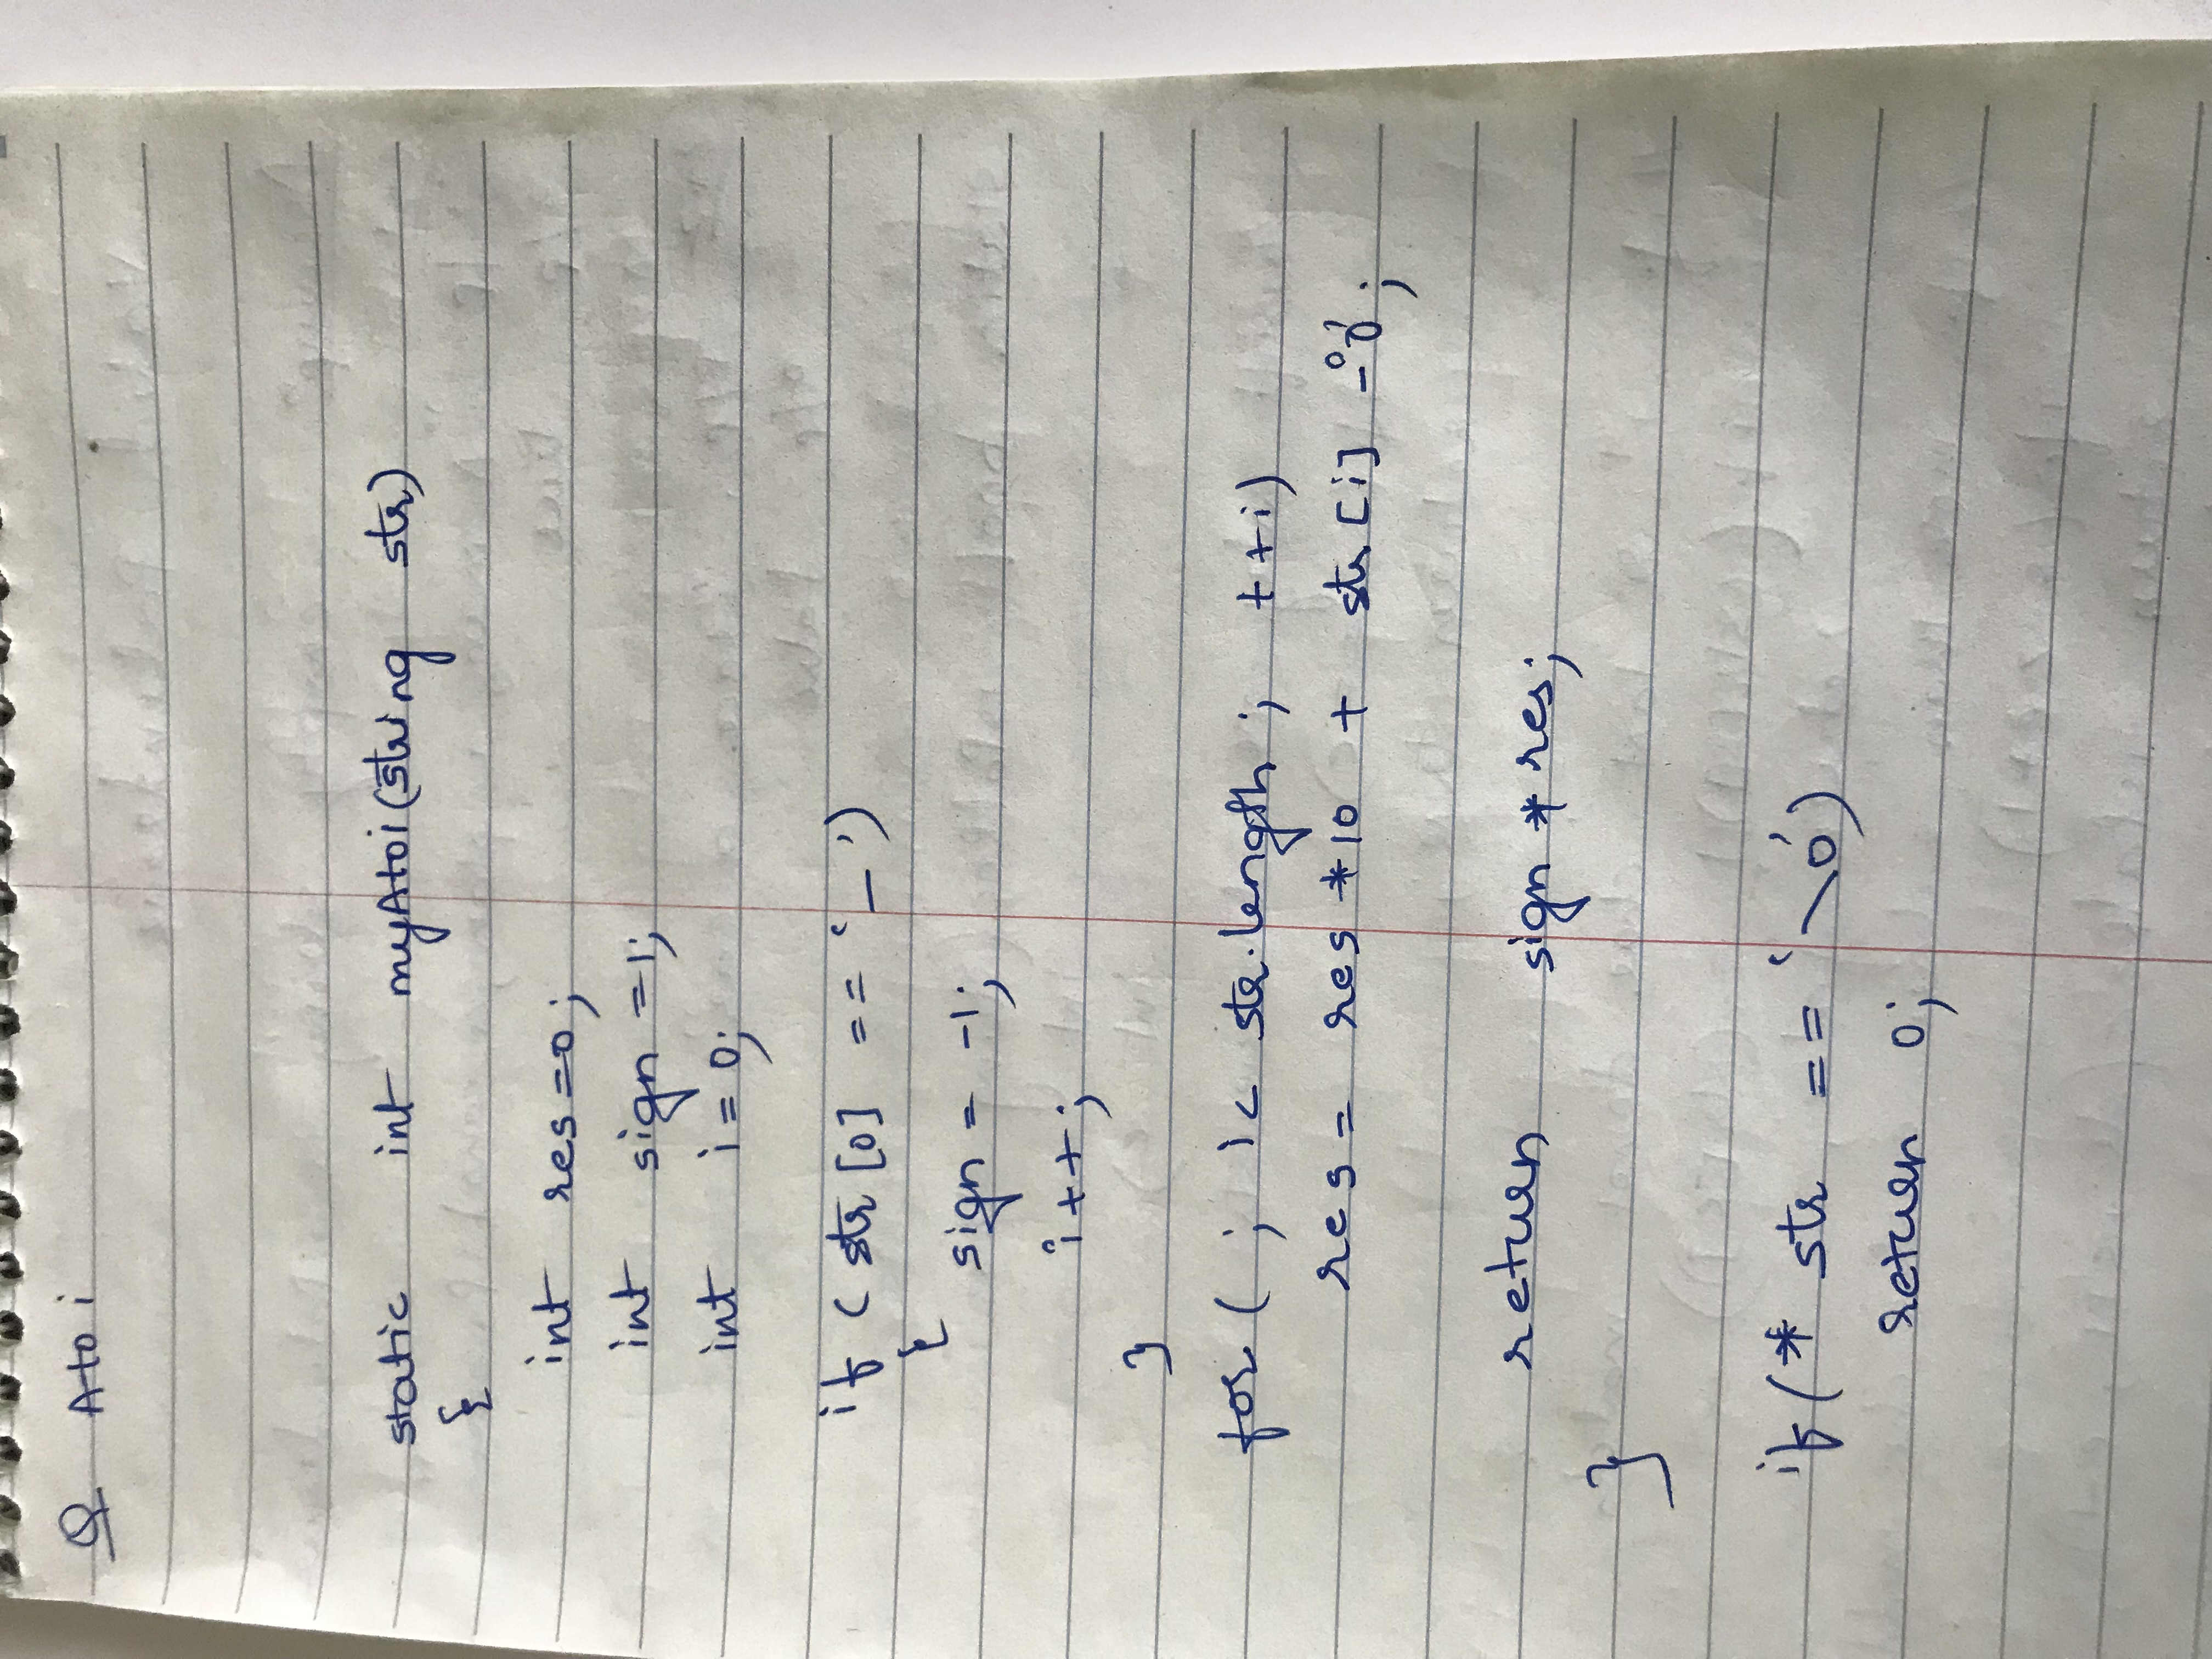 Q Atoi
static int myAtoi(string str)
{
int res=0;
int sign =1;
int i = 0;
if ( str [0] == '-')
{
sign = -1;
i++;
}
for ( ; i< str.length ; ++i)
res = res *10 + str [i] -'0';
return sign * res;
}
if (* str == '\0')
return 0;